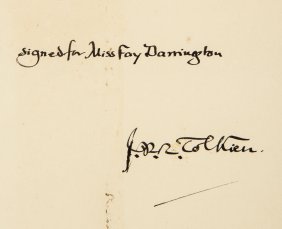 signed for Miss Fay Darrington
J.R.R. Tolkien.